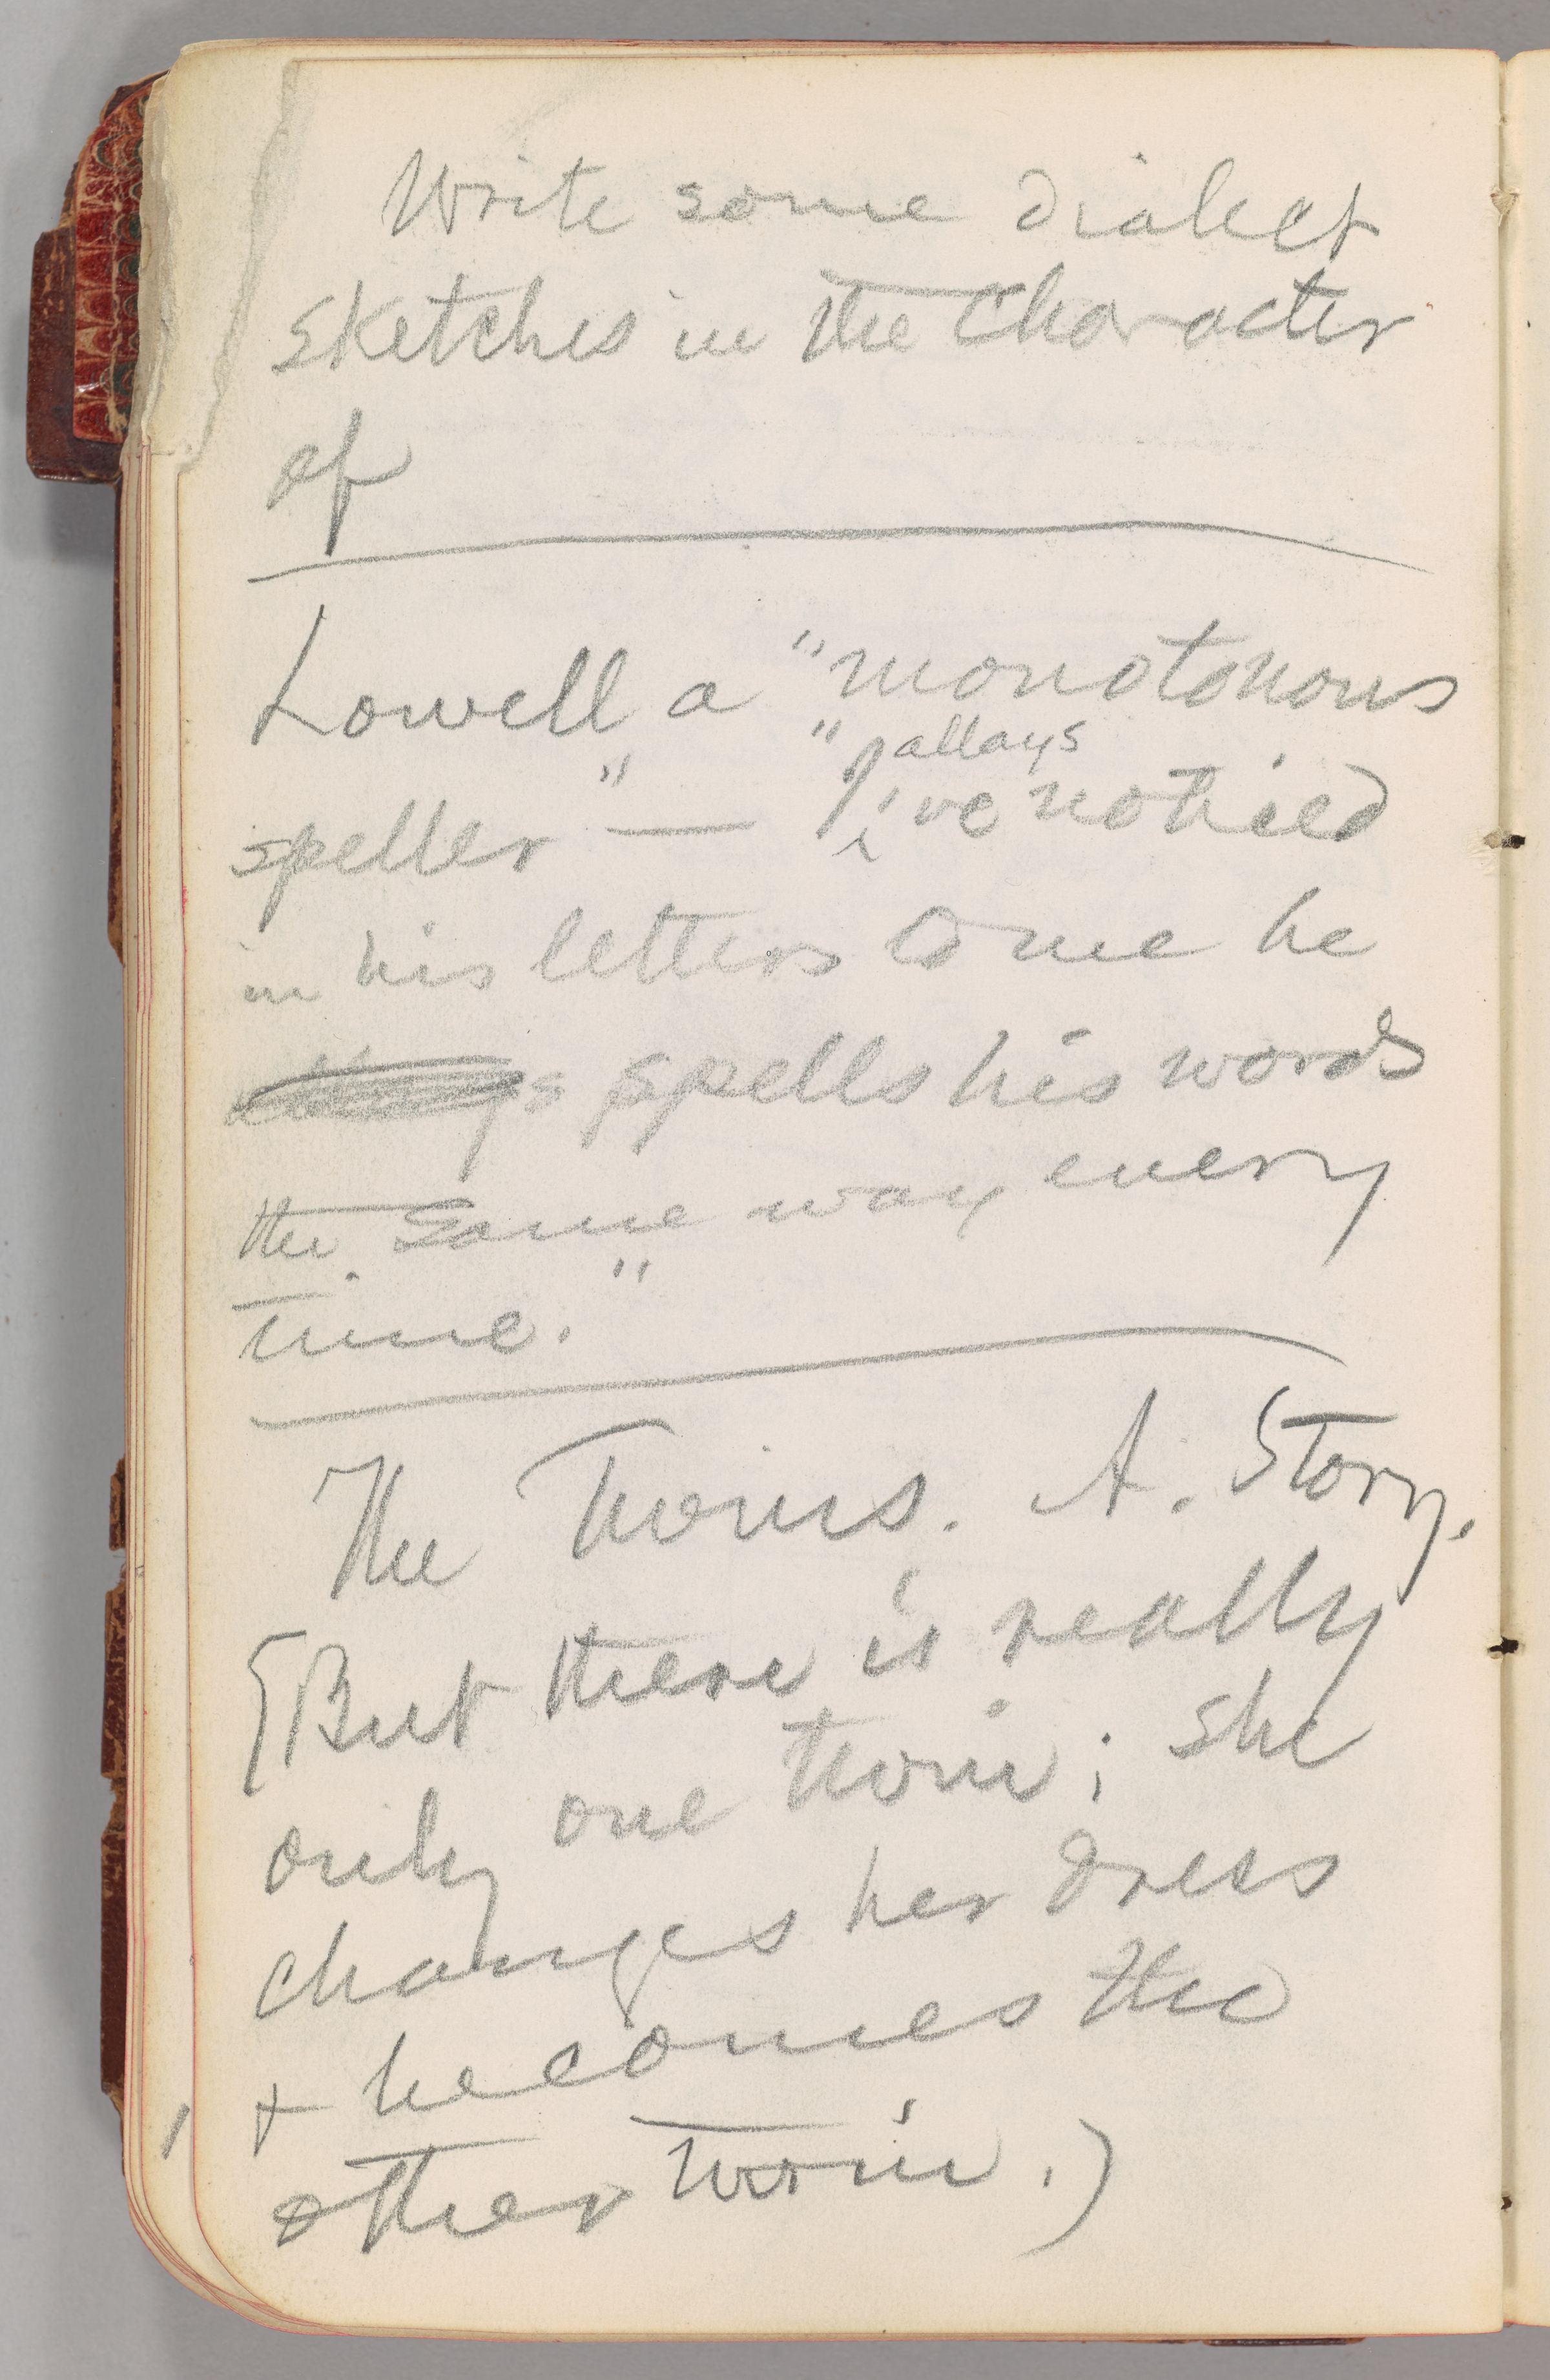 Write some dialect
sketches in the character
of
Lowell a "monotonous
speller" — "I allays 've noticed
in his letters to me he
spells his words
the same way every
time."
The Twins. A. Story.
(But there is really
only one twin; she
changes her dress
+ becomes the
other twin.)